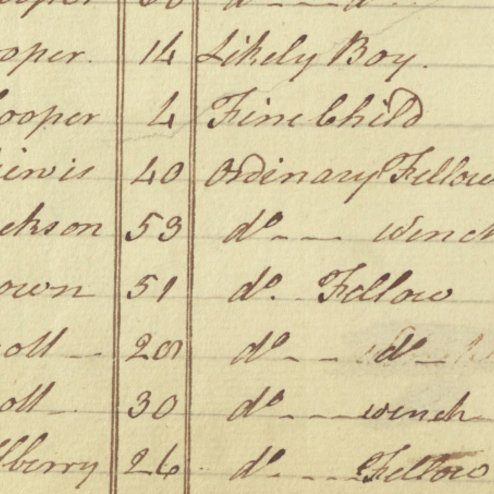 ooper 14 Likely Boy.
ooper 4 Fine Child
ewis 40 Ordinary Fellow
ckson 53 do - - wench
own 51 do. Fellow
oll - 20 do - - do -
oll - 30 do - - - wench
lberry 26 do - - - Fellow